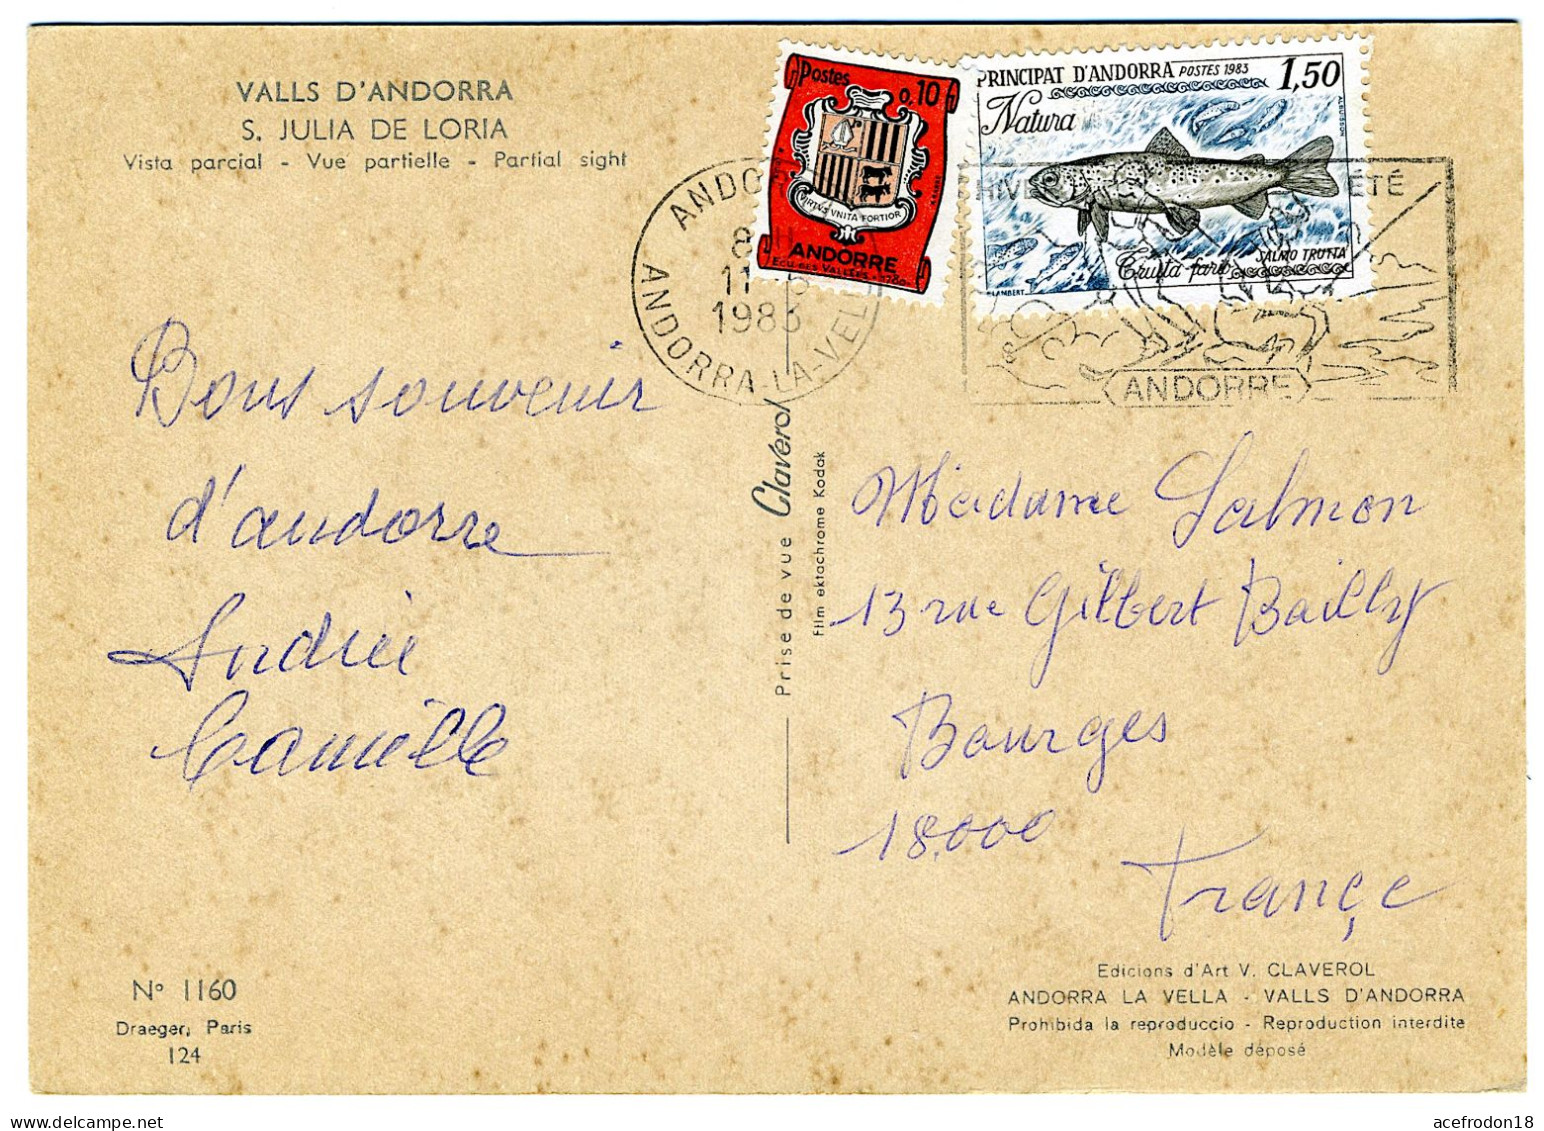 VALLS D'ANDORRA
S. JULIA DE LORIA
Vista parcial - Vue partielle - Partial sight
Postes
0,10
VIRTVS VNITA FORTIOR
ANDORRE
ECU DES VALLEES - 1780
PRINCIPAT D'ANDORRA POSTES 1983
1,50
Natura
ALBUISSON
SALMO TRUTTA
Truita fario
LAMBERT
ANDO
8 H
11
1983
ANDORRA-LA-VELL
HIVE
ÉTÉ
ANDORRE
Bons souvenir
d'andorre
Andrée
Camille
Prise de vue Claverol
Film ektachrome Kodak
Madame Salmon
13 rue Gilbert Bailly
Bourges
18.000
Françe
Nº 1160
Draeger, Paris
124
Edicions d'Art V. CLAVEROL
ANDORRA LA VELLA - VALLS D'ANDORRA
Prohibida la reproduccio - Reproduction interdite
Modèle déposé
acefrodon18